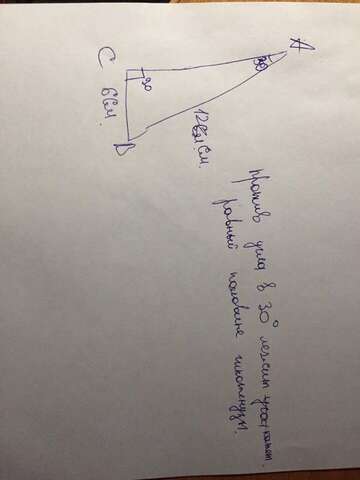 A
30
C
90
6 см.
12 см.
B
против угла в 30° лежит катет
равный половине гипотенузы.